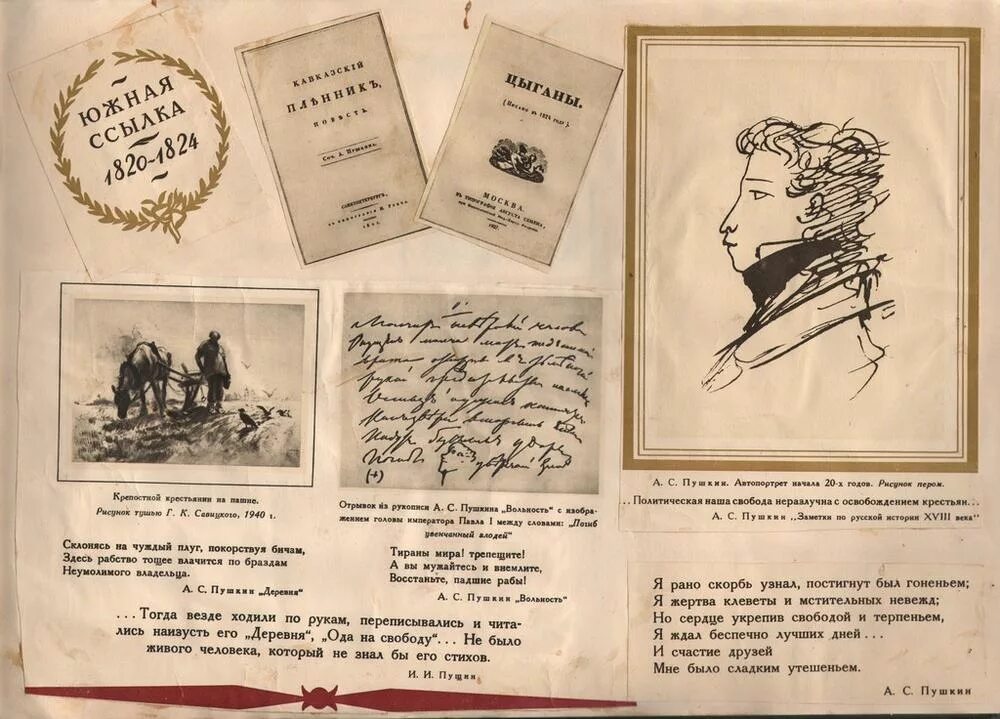 ЮЖНАЯ
ССЫЛКА
1820-1824
КАВКАЗСКІЙ
ПЛѢННИКЪ,
ПОВѢСТЬ.
Соч. А. Пушкина.
САНКТПЕТЕРБУРГЪ,
ЦЫГАНЫ.
(Писано въ 1824 году).
МОСКВА.
ВЪ ТИПОГРАФІИ АВГУСТА СЕМЕНА,
1827.
Крепостной крестьянин на пашне.
Рисунок тушью Г. К. Савицкого, 1940 г.
Склонясь на чуждый плуг, покорствуя бичам,
Здесь рабство тощее влачится по браздам
Неумолимого владельца.
А. С. Пушкин „Деревня“
Отрывок из рукописи А. С. Пушкина „Вольность“ с изобра-
жением головы императора Павла I между словами: „Погиб
увенчанный злодей“
Тираны мира! трепещите!
А вы мужайтесь и внемлите,
Восстаньте, падшие рабы!
А. С. Пушкин „Вольность“
...Тогда везде ходили по рукам, переписывались и чита-
лись наизусть его „Деревня“, „Ода на свободу“... Не было
живого человека, который не знал бы его стихов.
И. И. Пущин
А. С. Пушкин. Автопортрет начала 20-х годов. Рисунок пером.
...Политическая наша свобода неразлучна с освобождением крестьян...
А. С. Пушкин „Заметки по русской истории XVIII века“
Я рано скорбь узнал, постигнут был гоненьем;
Я жертва клеветы и мстительных невежд;
Но сердце укрепив свободой и терпеньем,
Я ждал беспечно лучших дней...
И счастие друзей
Мне было сладким утешеньем.
А. С. Пушкин